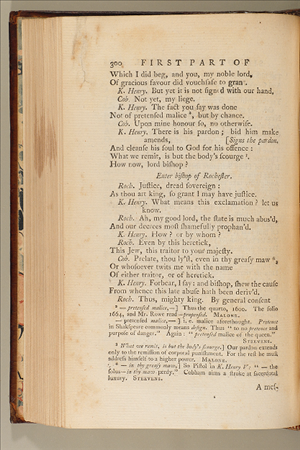 300 FIRST PART OF
Which I did beg, and you, my noble lord,
Of gracious favour did vouchsafe to grant.
K. Henry. But yet it is not sign'd with our hand.
Cob. Not yet, my liege.
K. Henry. The fact you say was done
Not of pretensed malice ⁸, but by chance.
Cob. Upon mine honour so, no otherwise.
K. Henry. There is his pardon; bid him make
amends, [Signs the pardon.
And cleanse his soul to God for his offence:
What we remit, is but the body's scourge ⁹.
How now, lord bishop?
Enter bishop of Rochester.
Roch. Justice, dread sovereign:
As thou art king, so grant I may have justice.
K. Henry. What means this exclamation? let us
know.
Roch. Ah, my good lord, the state is much abus'd,
And our decrees most shamefully prophan'd.
K. Henry. How? or by whom?
Roch. Even by this heretick,
This Jew, this traitor to your majesty.
Cob. Prelate, thou ly'st, even in thy greasy maw ¹,
Or whosoever twits me with the name
Of either traitor, or of heretick.
K. Henry. Forbear, I say: and bishop, shew the cause
From whence this late abuse hath been deriv'd.
Roch. Thus, mighty king. By general consent
⁸ — pretensed malice,—] Thus the quarto, 1600. The folio
1664, and Mr. Rowe read—proposed. MALONE.
— pretensed malice,—] i. e. malice aforethought. Pretence
in Shakspeare commonly means design. Thus "to no pretence and
purpose of danger." Again: "pretended malice of the queen."
STEEVENS.
⁹ What we remit, is but the body's scourge.] Our pardon extends
only to the remission of corporal punishment. For the rest he must
address himself to a higher power. MALONE.
¹ — in thy greasy maw,] So Pistol in K. Henry V: "— the
solus—in thy maw perdy." Cobham aims a stroke at sacerdotal
luxury. STEEVENS.
A mes-